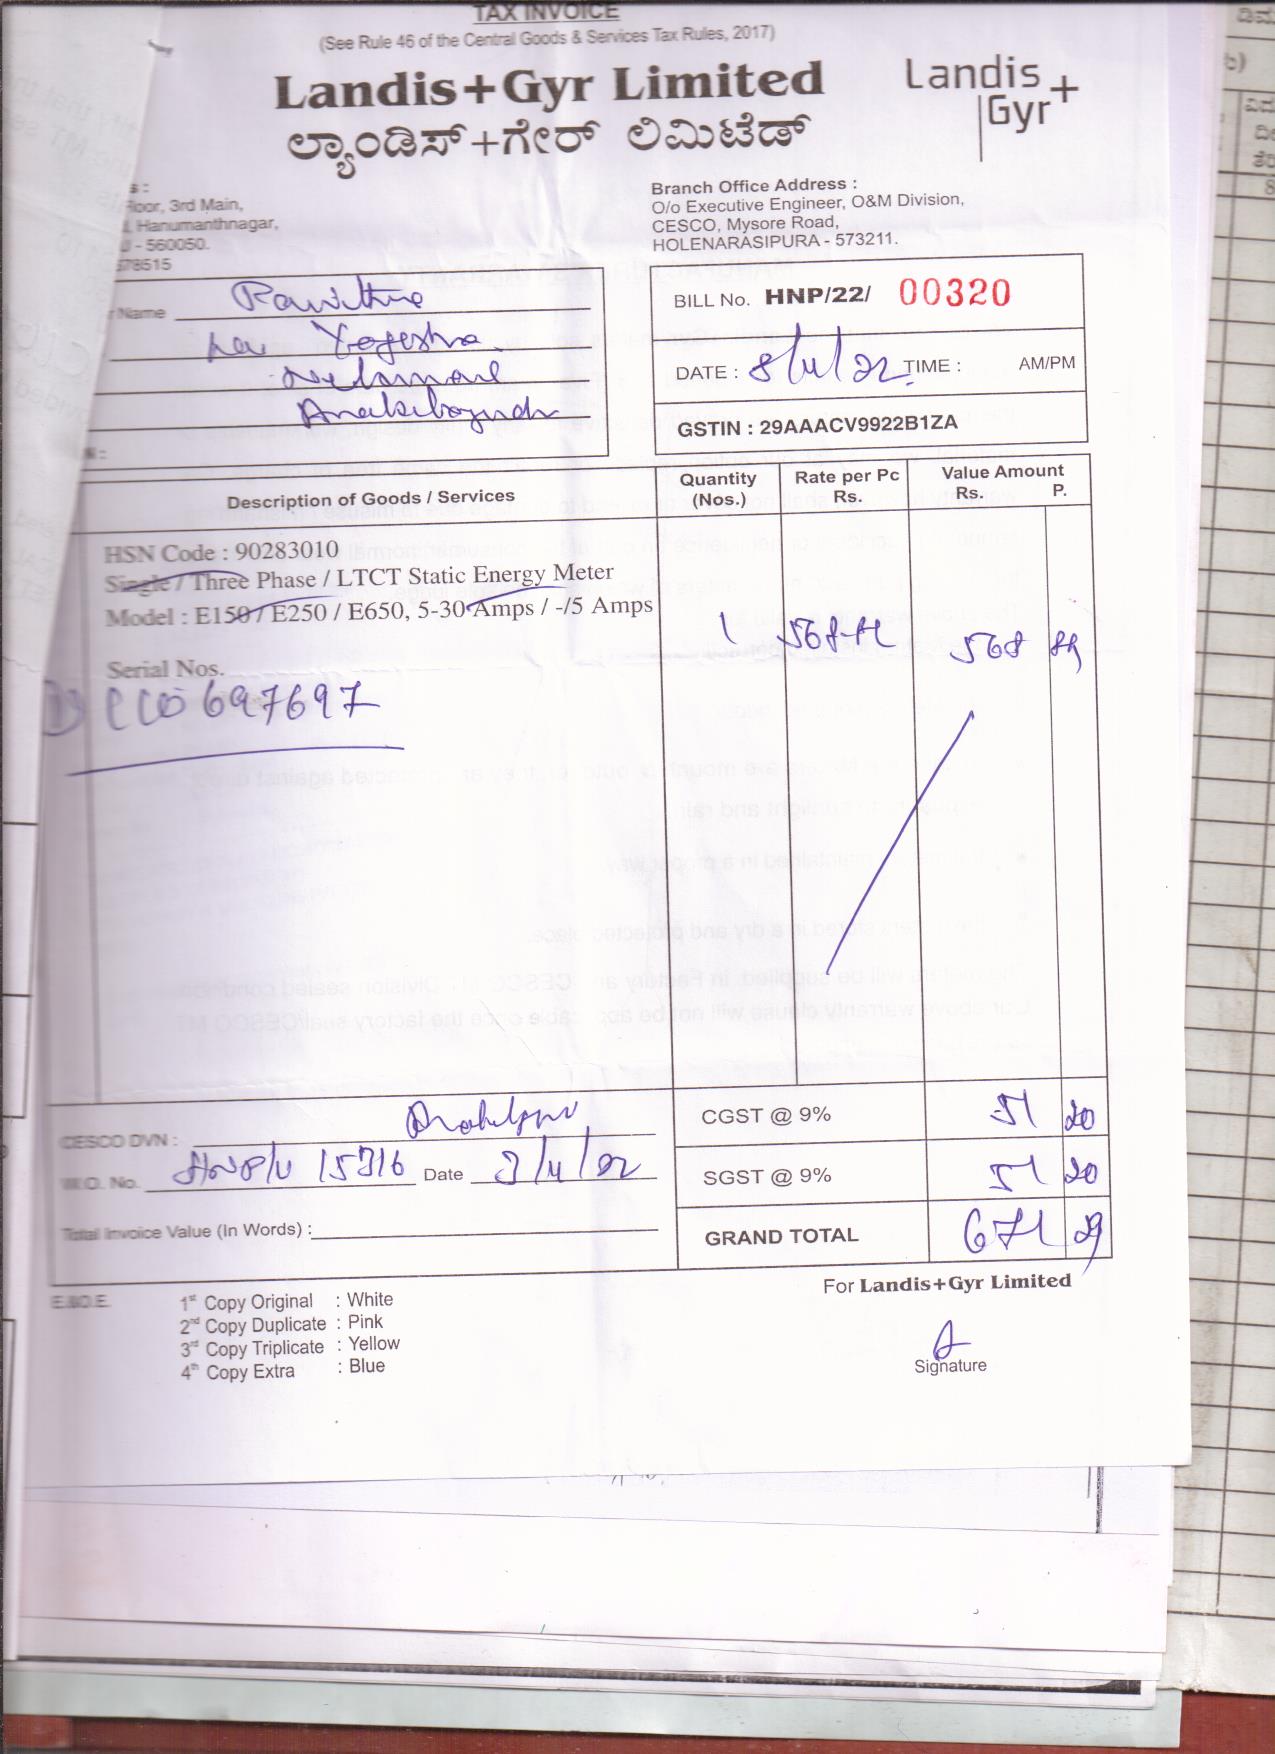 TAX INVOICE
(See Rule 46 of the Central Goods & Services Tax Rules, 2017)
Landis+Gyr Limited
ಲ್ಯಾಂಡಿಸ್+ಗೇರ್ ಲಿಮಿಟೆಡ್
Landis
Gyr+
s :
Floor, 3rd Main,
Hanumanthnagar,
U - 560050.
578515
Branch Office Address :
O/o Executive Engineer, O&M Division,
CESCO, Mysore Road,
HOLENARASIPURA - 573211.
Name
BILL No. HNP/22/ 00320
DATE : 8/11/22 TIME : AM/PM
GSTIN : 29AAACV9922B1ZA
N :
Description of Goods / Services
Quantity (Nos.)
Rate per Pc Rs.
Value Amount Rs. P.
HSN Code : 90283010
Single / Three Phase / LTCT Static Energy Meter
Model : E150 / E250 / E650, 5-30 Amps / -/5 Amps
1
568
Serial Nos.
697697
CGST @ 9% 51 20
CESCO DVN :
W.O. No. 15316 Date 3/11/22
SGST @ 9% 51 20
Total Invoice Value (In Words) :
GRAND TOTAL 671 29
E.&O.E.
1st Copy Original : White
2nd Copy Duplicate : Pink
3rd Copy Triplicate : Yellow
4th Copy Extra : Blue
For Landis+Gyr Limited
Signature